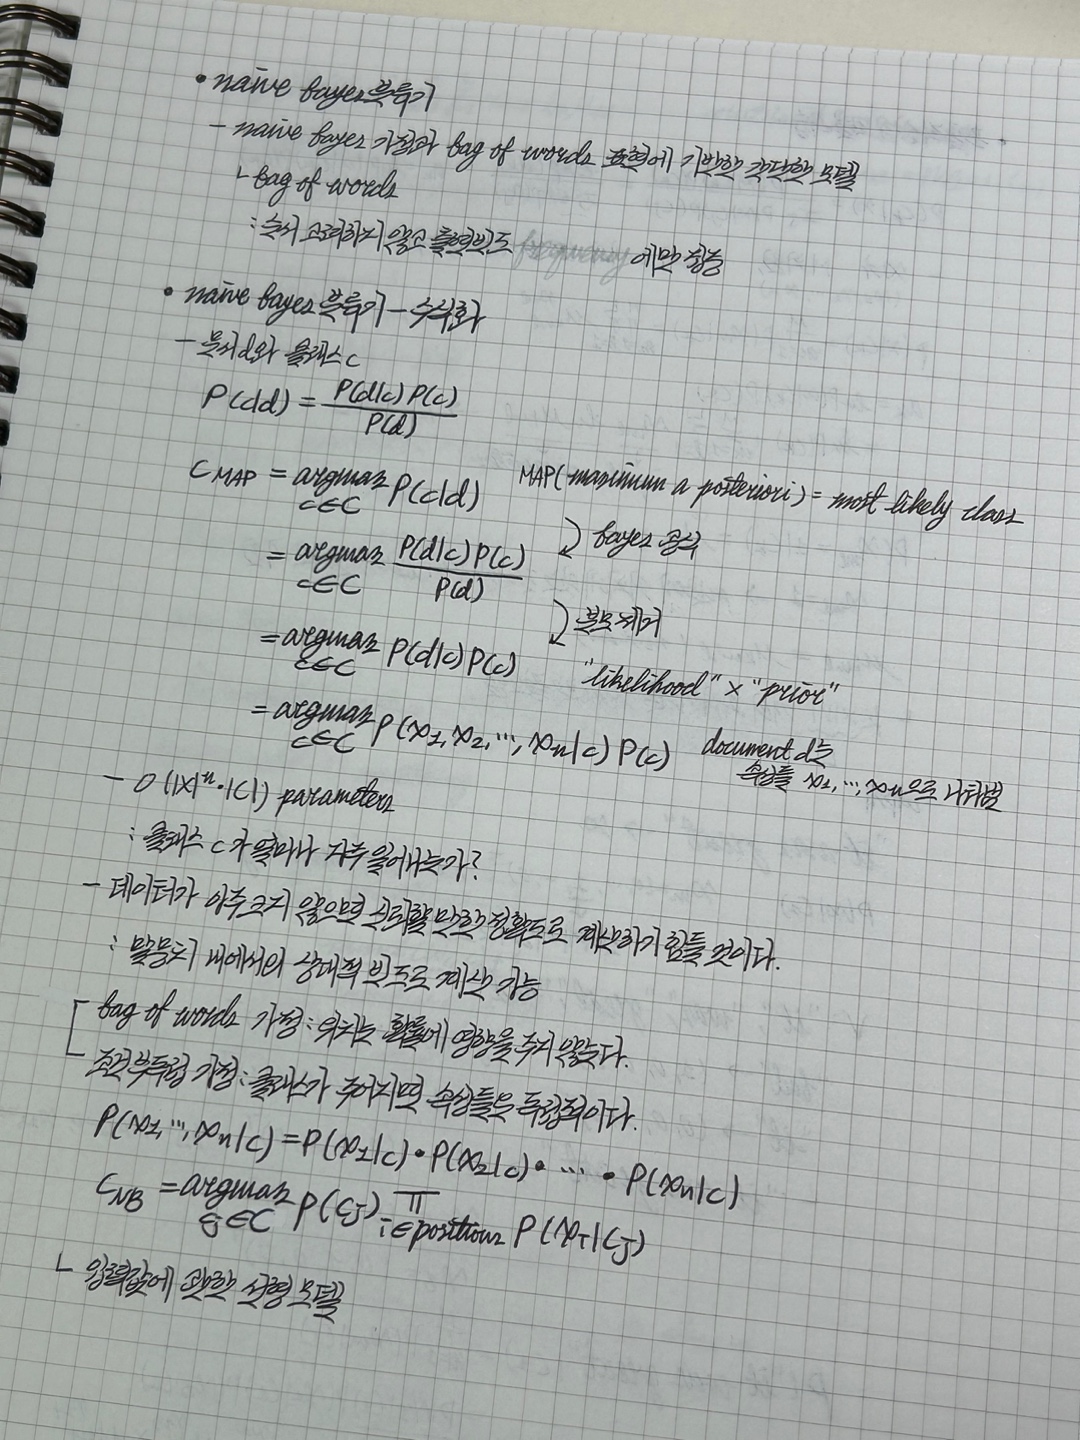 • naive bayes 분류기
- naive bayes 가정과 bag of words 표현에 기반한 간단한 모델
ㄴ bag of words
: 순서 고려하지 않고 출현빈도 frequency 에만 집중
• naive bayes 분류기 - 수식화
- 문서 d와 클래스 c
P(c|d) = P(d|c)P(c) / P(d)
C_MAP = argmax_{c∈C} P(c|d) MAP(maximum a posteriori) = most likely class
= argmax_{c∈C} P(d|c)P(c) / P(d) bayes 공식
= argmax_{c∈C} P(d|c)P(c) 분모제거
"likelihood" × "prior"
= argmax_{c∈C} P(x1, x2, ..., xn|c) P(c) document d는
속성들 x1, ..., xn으로 나타냄
- O(|X|^n·|C|) parameters
: 클래스 c가 얼마나 자주 일어나는가?
- 데이터가 아주 크지 않으면 신뢰할 만한 정확도로 계산하기 힘들 것이다.
: 말뭉치 내에서의 상대적 빈도로 계산 가능
bag of words 가정: 위치는 확률에 영향을 주지 않는다.
조건부독립 가정: 클래스가 주어지면 속성들은 독립적이다.
P(x1, ..., xn|c) = P(x1|c)•P(x2|c)• ... •P(xn|c)
C_NB = argmax_{cj∈C} P(cj) ∏_{i∈positions} P(xi|cj)
ㄴ 입력값에 관한 선형 모델